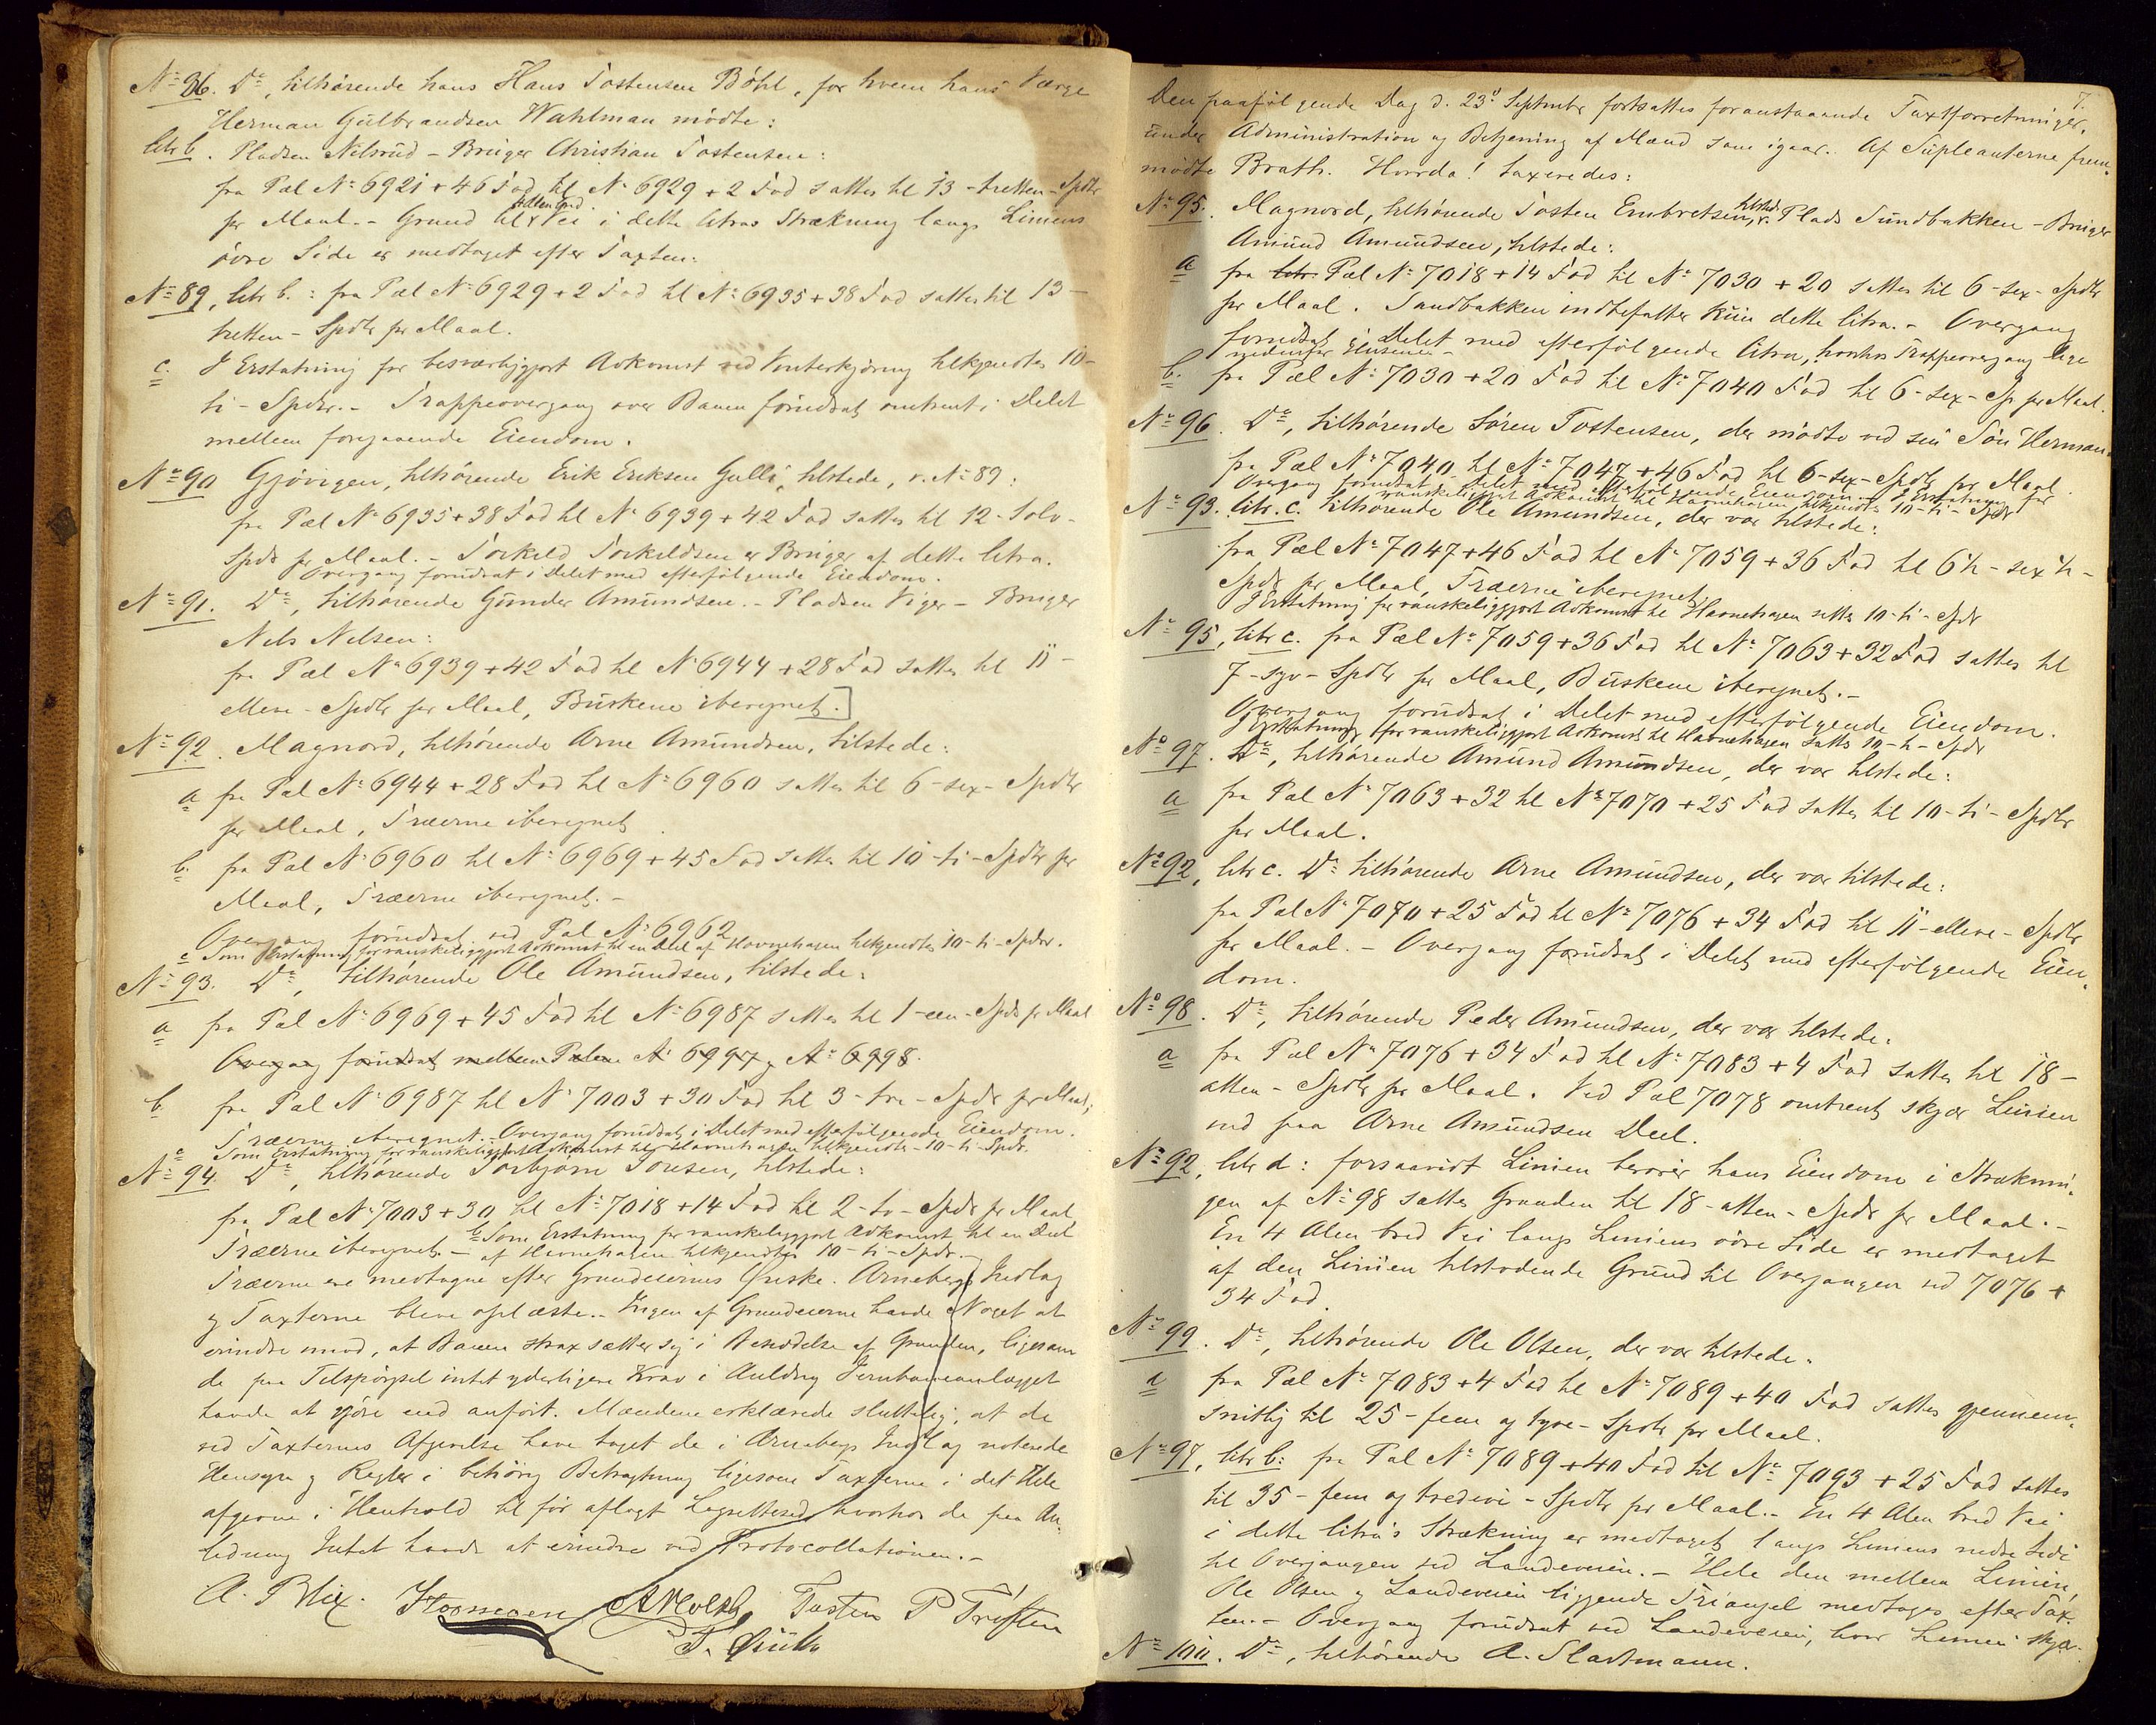 No 36. Do, tilhørende hans Hans Tostensen Böhl, for hvem hans Værge
Herman Gulbrandsen Wahlman mödte:
litr b. Pladsen Nilsrud - Bruger Christian Tostensen:
fra Pæl No 6921 + 46 Fod til No 6929 + 2 Fod sattes til 13 - tretten - Spdlr
pr Maal. - Grund til Vei i dette litras Strækning langs Liniens
övre Side er medtaget efter Taxten.
No 89, litr b.: fra Pæl No 6929 + 2 Fod til No 6935 + 38 Fod sattes til 13 -
tretten - Spdlr pr Maal.
c. I Erstatning for besværliggjort Adkomst ved Vinterkjöring tilkjendtes 10 -
ti - Spdlr. - Trappeovergang over Banen forudsat omtrent i Delet
mellem foregaaende Eiendom.
No 90 Gjövigen, tilhørende Erik Eriksen Gulli, tilstede, v. No 89:
fra Pæl No 6935 + 38 Fod til No 6939 + 42 Fod sattes til 12 - tolv -
Spdlr pr Maal. - Torkild Torkildsen er Bruger af dette litra.
Overgang forudsat i Delet med efterfölgende Eiendom.
No 91. Do, tilhørende Gunder Amundsen. - Pladsen Viger - Bruger
Nils Nilsen:
fra Pæl No 6939 + 42 Fod til No 6944 + 28 Fod sattes til 11 -
elleve - Spdlr pr Maal, Buskene iberegnet.
No 92. Magnord, tilhørende Arne Amundsen, tilstede:
a fra Pæl No 6944 + 28 Fod til No 6960 sattes til 6 - sex - Spdlr
pr Maal, Træerne iberegnet.
b. fra Pæl No 6960 til No 6969 + 45 Fod sattes til 10 - ti - Spdlr pr
Maal, Træerne iberegnet. -
Overgang forudsat ved Pæl No 6962
c Som Erstatning for vanskeliggjort Adkomst til en Deel af Havnehagen tilkjendtes 10 - ti - Spdlr.
No 93. Do, tilhørende Ole Amundsen, tilstede:
a fra Pæl No 6969 + 45 Fod til No 6987 sattes til 1 - een - Spdlr pr Maal
Overgang forudsat mellem Pælene No 6997 og No 6998.
b. fra Pæl No 6987 til No 7003 + 30 Fod til 3 - tre - Spdlr pr Maal,
Træerne iberegnet. - Overgang forudsat i Delet med efterfölgende Eiendom.
c Som Erstatning for vanskeliggjort Adkomst til Havnehagen tilkjendtes 10 - ti - Spdlr.
No 94. Do, tilhørende Torbjörn Toresen, tilstede:
fra Pæl No 7003 + 30 til No 7018 + 14 Fod til 2 - to - Spdlr pr Maal
Træerne iberegnet. - b Som Erstatning for vanskeliggjort Adkomst til en Deel
af Havnehagen tilkjendtes 10 - ti - Spdlr. -
Træerne ere medtagne efter Grundeiernes Önske. Arnebergs Indlæg
og Taxterne bleve oplæste. - Ingen af Grundeierne havde Noget at
erindre imod, at Banen strax sætter sig i Besiddelse af Grunden, ligesom
de paa Tilspörgsel intet yderligere Krav i Anledng Jernbaneanlægget
havde at gjöre end anfört. Mændene erklærede sluttelig, at de
ved Taxternes Afgivelse have taget de i Arnebergs Indlæg noterede
Hensyn og Regler i behörig Betragtning ligesom Taxterne i det Hele
afgivne i Henhold til för aflagt Lagrettesed, hvorhos de paa An-
ledning Intet havde at erindre ved Protocollationen. -
A. Blix. Tosten P Trösten
Den paafölgende Dag d. 23d September fortsattes foranstaaende Taxtforretninger, 7.
under Administration og Betjening af Mænd som igaar. Af Supleanterne frem-
mödte Brath. Hvorda! taxeredes:
No 95. Magnord, tilhørende Tosten Embretsen, tilsted. v. Plads Sundbakken - Bruger
Amund Amundsen, tilstede:
a fra litr. Pæl No 7018 + 14 Fod til No 7030 + 20 sattes til 6 - sex - Spdlr
pr Maal. Sandbakken indbefatter kun dette litra. - Overgang
forudsat i Delet med efterfölgende litra, hvorhos Trappeovergang lige
nedenfor Husene -
b. fra Pæl No 7030 + 20 Fod til No 7040 Fod til 6 - sex - Sp pr Maal.
No 96. Do, tilhørende Sören Tostensen, der mödte ved sin Sön Herman.
fra Pæl No 7040 til No 7047 + 46 Fod til 6 - sex - Spdlr pr Maal.
Overgang forudsat i Delet med efterfölgende Eiendom. - I Erstatning for
vanskeliggjort Adkomst til Havnehagen tilkjendtes 10 - ti - Spdlr
No 93. litr. c. tilhørende Ole Amundsen, der var tilstede:
fra Pæl No 7047 + 46 Fod til No 7059 + 36 Fod til 6½ - sex ½ -
Spdlr pr Maal, Træerne iberegnet.
I Erstatning for vanskeliggjort Adkomst til Havnehagen sattes 10 - ti - Spdlr
No 95, litr c. fra Pæl No 7059 + 36 Fod til No 7063 + 32 Fod sattes til
7 - syv - Spdlr pr Maal, Buskene iberegnet. -
Overgang forudsat i Delet med efterfölgende Eiendom.
I Erstatning for vanskeliggjort Adkomst til Havnehagen sattes 10 - ti - Spdlr
No 97. Do, tilhørende Amund Amundsen, der var tilstede:
a fra Pæl No 7063 + 32 til No 7070 + 25 Fod sattes til 10 - ti - Spdlr
pr Maal.
No 92, litr c. Do tilhørende Arne Amundsen, der var tilstede:
fra Pæl No 7070 + 25 Fod til No 7076 + 34 Fod til 11 - elleve - Spdlr
pr Maal. - Overgang forudsat i Delet med efterfölgende Eien-
dom.
No 98. Do, tilhørende Peder Amundsen, der var tilstede.
a fra Pæl No 7076 + 34 Fod til No 7083 + 4 Fod sattes til 18 -
atten - Spdlr pr Maal. Ved Pæl 7078 omtrent skjær Linien
ind paa Arne Amundsen Deel.
No 92, litr d: forsaavidt Linien berörer hans Eiendom i Stræknin-
gen af No 98 sattes Grunden til 18 - atten - Spdlr pr Maal. -
En 4 Alen bred Vei langs Liniens övre Side er medtaget
af den Linien tilstödende Grund til Overgangen ved 7076 +
34 Fod.
No 99. Do, tilhørende Ole Olsen, der var tilstede.
a fra Pæl No 7083 + 4 Fod til No 7089 + 40 Fod sattes gjennem-
snitlig til 25 - fem og tyve - Spdlr pr Maal.
No 97, litr b: fra Pæl No 7089 + 40 Fod til No 7093 + 25 Fod sattes
til 35 - fem og tredive - Spdlr pr Maal. - En 4 Alen bred Vei
i dette litra's Strækning er medtaget langs Liniens nedre Side
til Overgangen ved Landeveien. - Hele den mellem Linien,
Ole Olsen og Landeveien liggende Triangel medtages efter Tax-
ten. - Overgang forudsat ved Landeveien, hvor Linien skjær.
No 100. Do, tilhørende A. Slastmann.